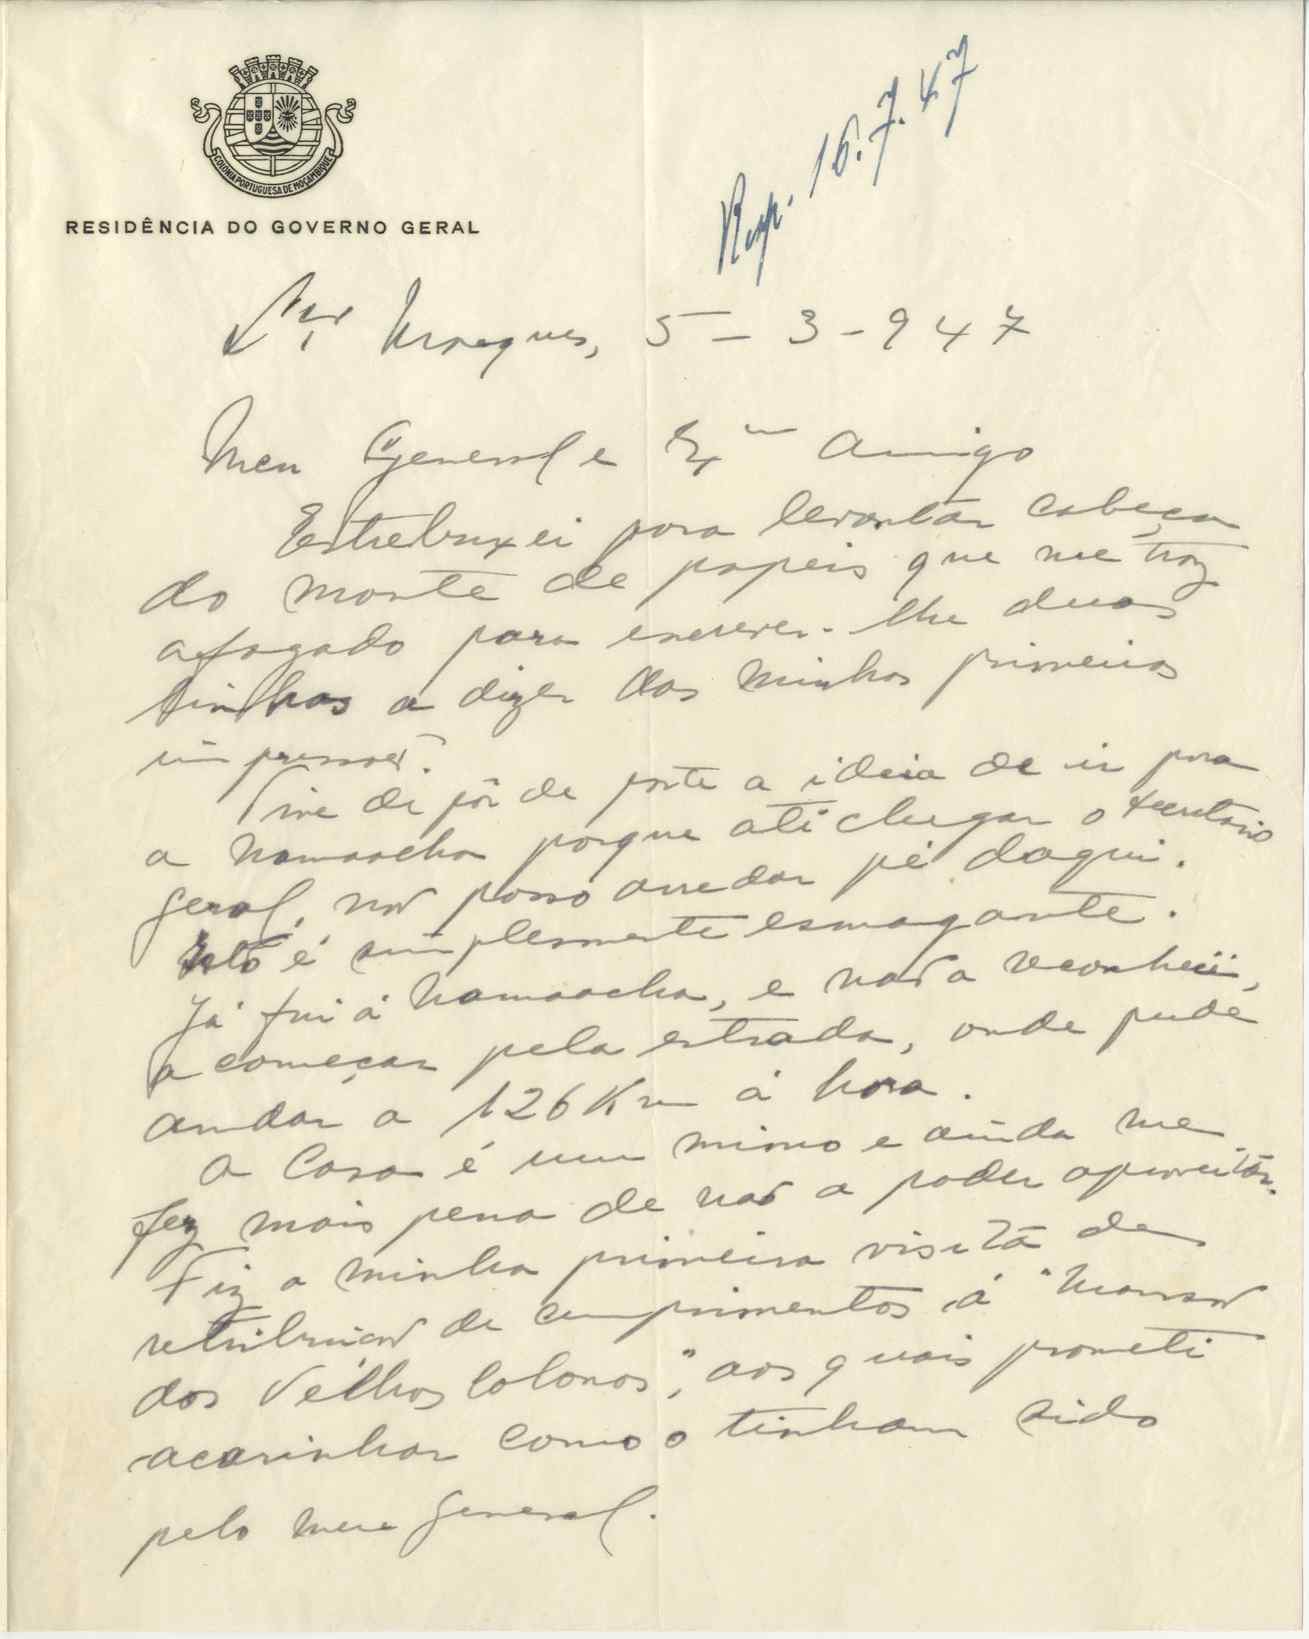 COLONIA PORTUGUESA DE MOÇAMBIQUE
RESIDÊNCIA DO GOVERNO GERAL
Resp. 16.7.47
Lço Marques, 5-3-947
Meu General e Exmo Amigo
Estrebuxei para levantar cabeça
do monte de papeis que me traz
afogado para escrever-lhe duas
linhas a dizer das minhas primeiras
impressões.
Tive de pôr de parte a ideia de ir para
a Namaacha porque até chegar o secretario
geral, não posso arredar pé daqui.
Isto é simplesmente esmagante.
Já fui á Namaacha, e não a reconheci,
a começar pela estrada, onde pude
andar a 126 Km á hora.
A Casa é um mimo e ainda me
fez mais pena de não a poder aproveitar.
Fiz a minha primeira visita de
retribuição de cumprimentos, á "Mansão
dos Velhos Colonos", aos quais prometi
acarinhar como o tinham sido
pelo meu General.